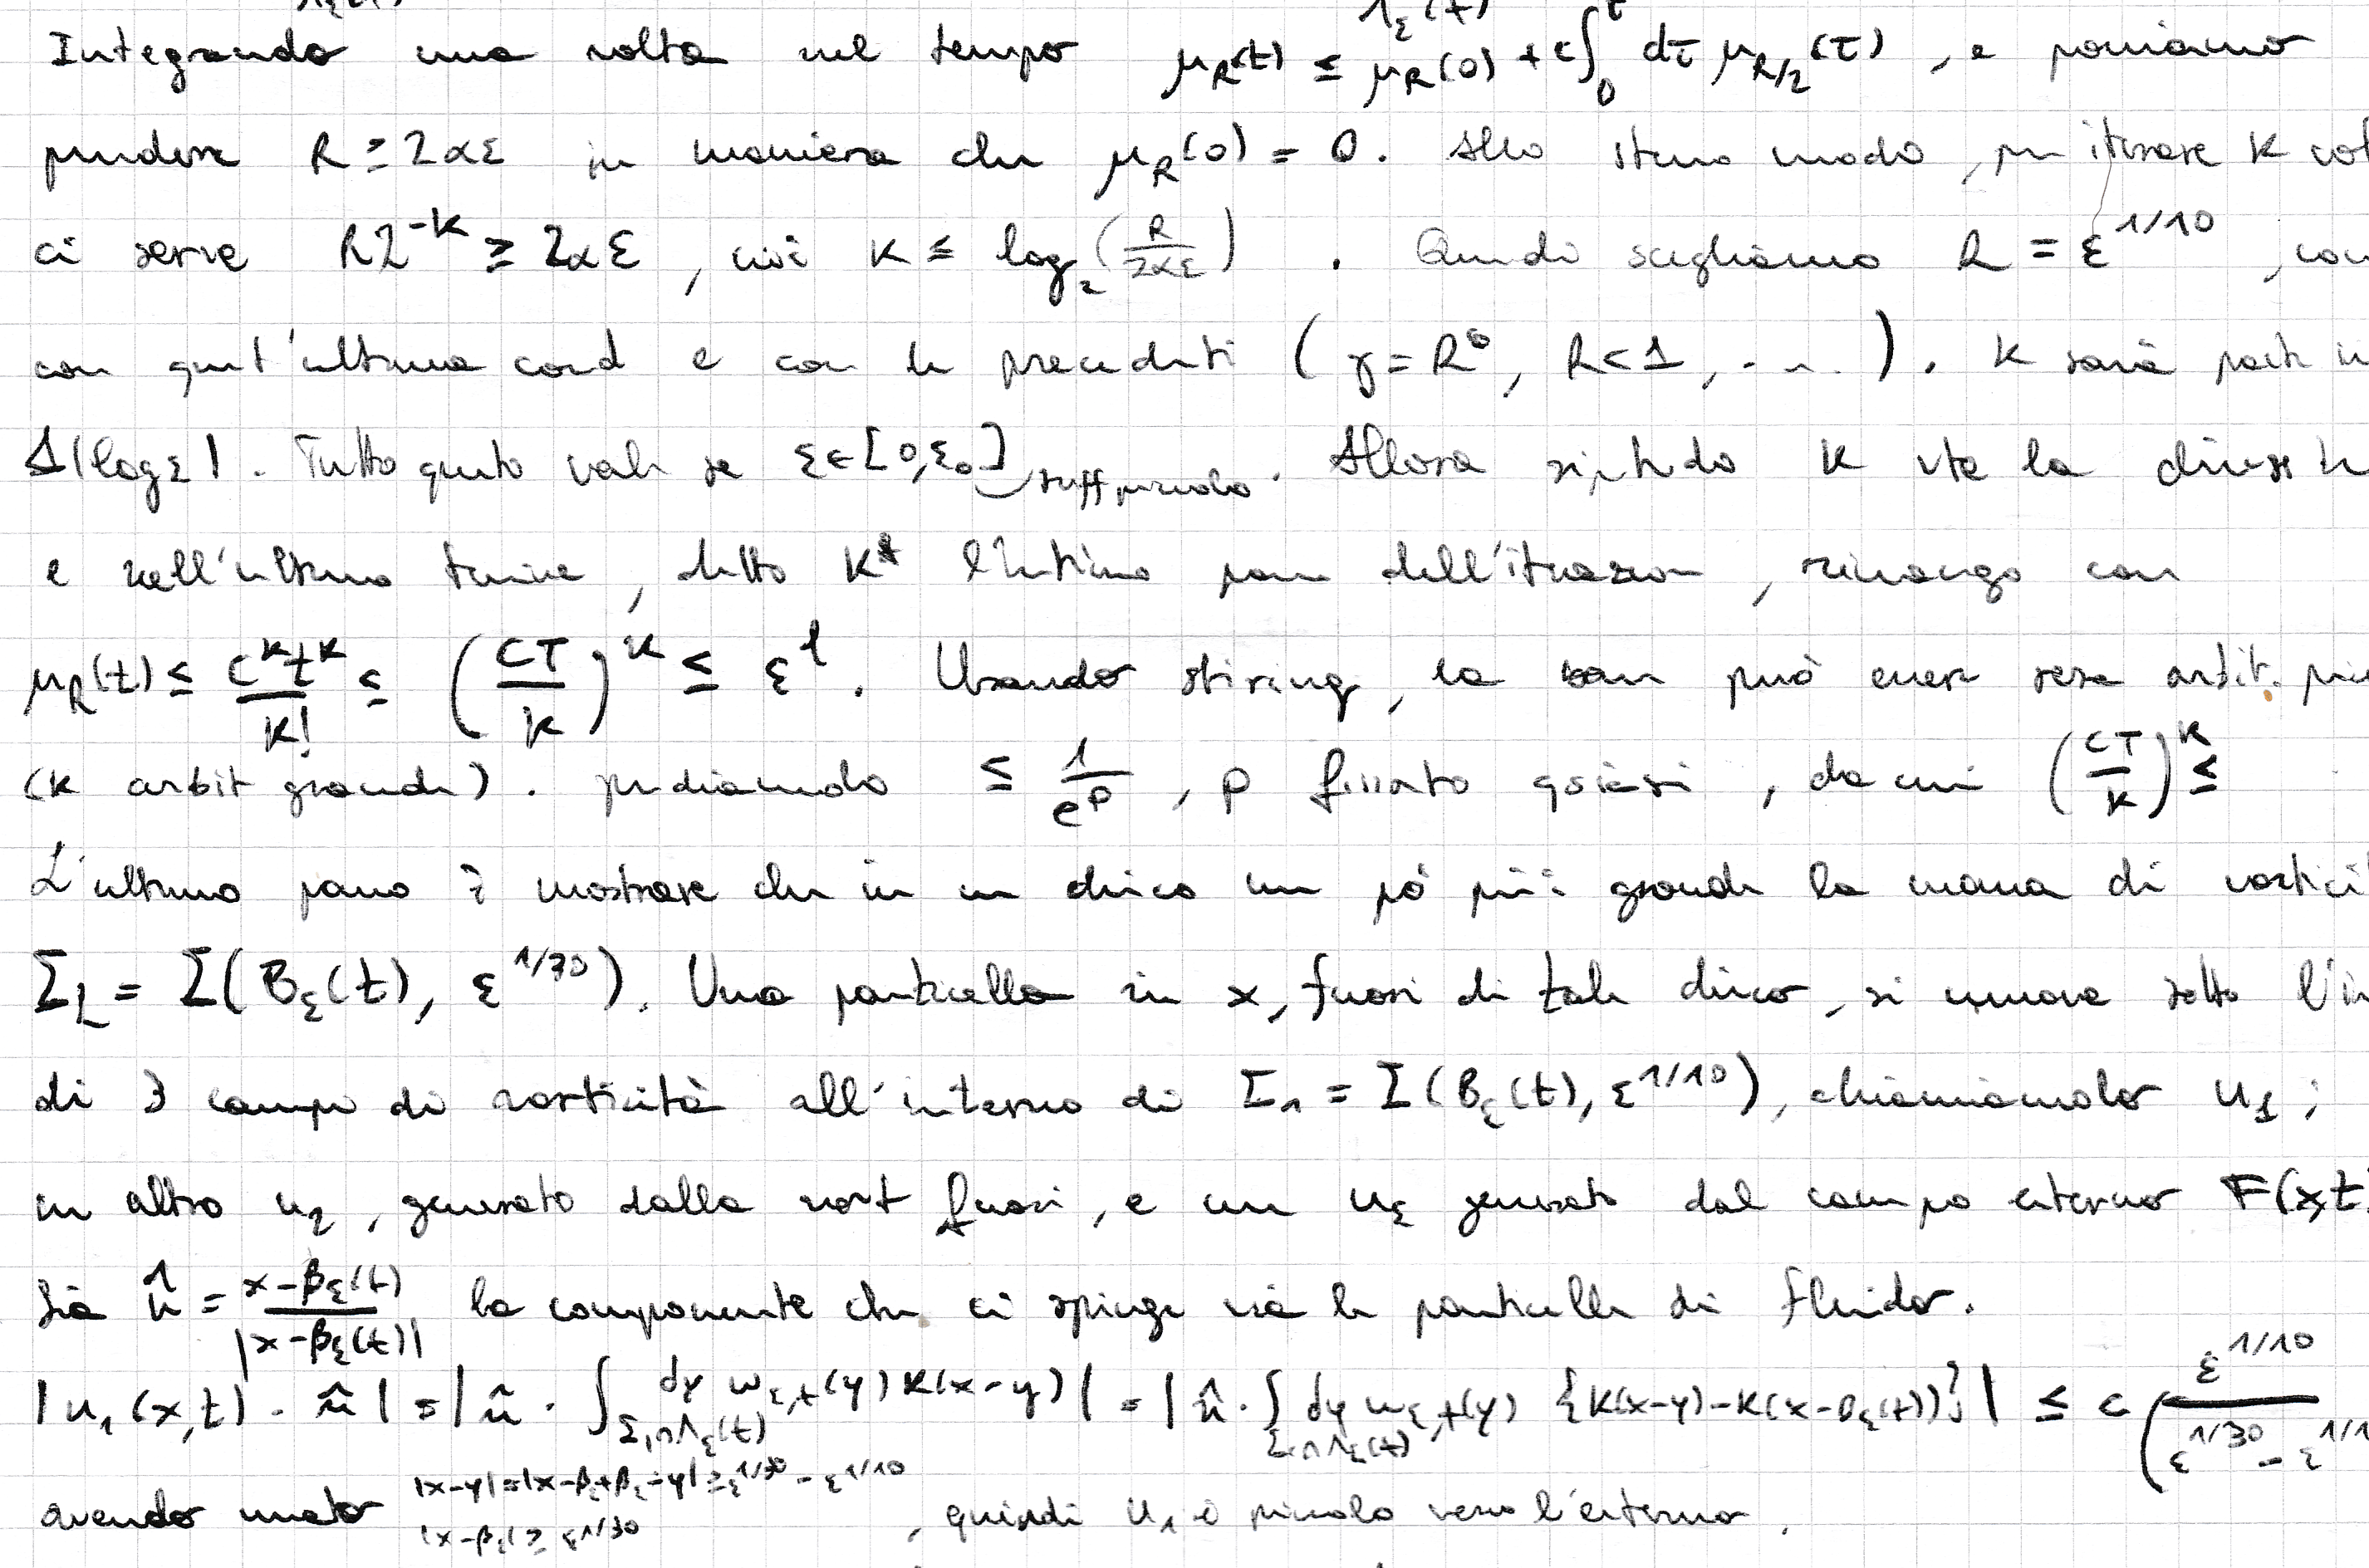 Λε(t)
Integrando una volta nel tempo μ_R(t) ≤ μ_R(0) + c∫_0^t dτ μ_{R/2}(τ), e possiamo
prendere R ≥ 2αε in maniera che μ_R(0) = 0. Allo stesso modo, per iterare K vol
ci serve R2^{-K} ≥ 2αε, cioè K ≤ log_2(R/2αε). Quindi scegliamo R = ε^{1/10}, con
con quest'ultima cond e con le precedenti (γ = R^6, R<1, ...). K sarà parte in
1|logε|. Tutto questo vale se ε∈[0,ε_0] suff piccolo. Allora ripetendo K vte la
e nell'ultimo termine, detto K* l' passo dell'iterazione, rimango con
μ_R(t) ≤ c^K t^K / K! ≤ (CT/K)^K ≤ ε^l. Usando stirling, la può essere resa arbit.
(K arbit grande). prendiamolo ≤ 1/e^p, p fissato qsiasi, da cui (CT/K)^K ≤
L'ultimo passo è mostrare che in un disco un pò più grande la massa di vortici
Σ_L = Σ(B_ε(t), ε^{1/30}). Una particella in x, fuori di tale disco, si muove sotto l'in
di 3 campi di vorticità all'interno di Σ_1 = Σ(B_ε(t), ε^{1/10}), chiamiamolo u_1;
un altro u_2, generato dalla vort fuori, e un u_ε generato dal campo esterno F(x,t)
Sia n̂ = x-β_ε(t) / |x-β_ε(t)| la componente che ci spinge via le particelle di fluido.
|u_1(x,t) · n̂| = |n̂ · ∫_{Σ_1∩Λ_ε(t)} dy w_{ε,t}(y) K(x-y)| = |n̂ · ∫_{Σ_1∩Λ_ε(t)} dy w_{ε,t}(y) {K(x-y)-K(x-β_ε(t))}| ≤ c(ε^{1/10} / ε^{1/30} - ε^{1/1
avendo usato |x-y|=|x-β_ε+β_ε-y| ≥ ε^{1/30} - ε^{1/10}
|x-β_ε| ≥ ε^{1/30}, quindi u_1 è piccolo verso l'esterno.